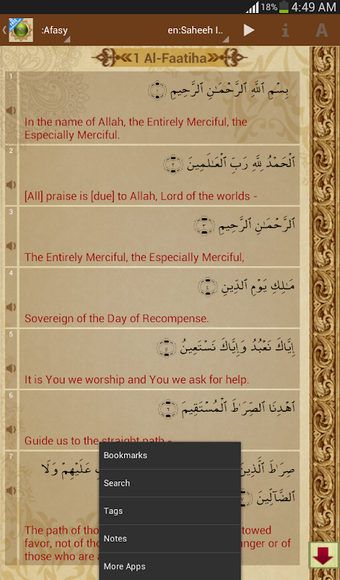 18% 4:49 AM
:Afasy en:Saheeh I.. A
1 Al-Faatiha
1
بِسْمِ ٱللَّهِ ٱلرَّحْمَٰنِ ٱلرَّحِيمِ ﴿١﴾
In the name of Allah, the Entirely Merciful, the
Especially Merciful.
2
ٱلْحَمْدُ لِلَّهِ رَبِّ ٱلْعَٰلَمِينَ ﴿٢﴾
[All] praise is [due] to Allah, Lord of the worlds -
3
ٱلرَّحْمَٰنِ ٱلرَّحِيمِ ﴿٣﴾
The Entirely Merciful, the Especially Merciful,
4
مَٰلِكِ يَوْمِ ٱلدِّينِ ﴿٤﴾
Sovereign of the Day of Recompense.
5
إِيَّاكَ نَعْبُدُ وَإِيَّاكَ نَسْتَعِينُ ﴿٥﴾
It is You we worship and You we ask for help.
6
ٱهْدِنَا ٱلصِّرَٰطَ ٱلْمُسْتَقِيمَ ﴿٦﴾
Guide us to the straight path -
7
صِرَٰطَ ٱلَّذِينَ عَلَيْهِمْ وَلَا
ٱلضَّآلِّينَ
The path of
favor, not of
those who are
Bookmarks
Search
Tags
Notes
More Apps